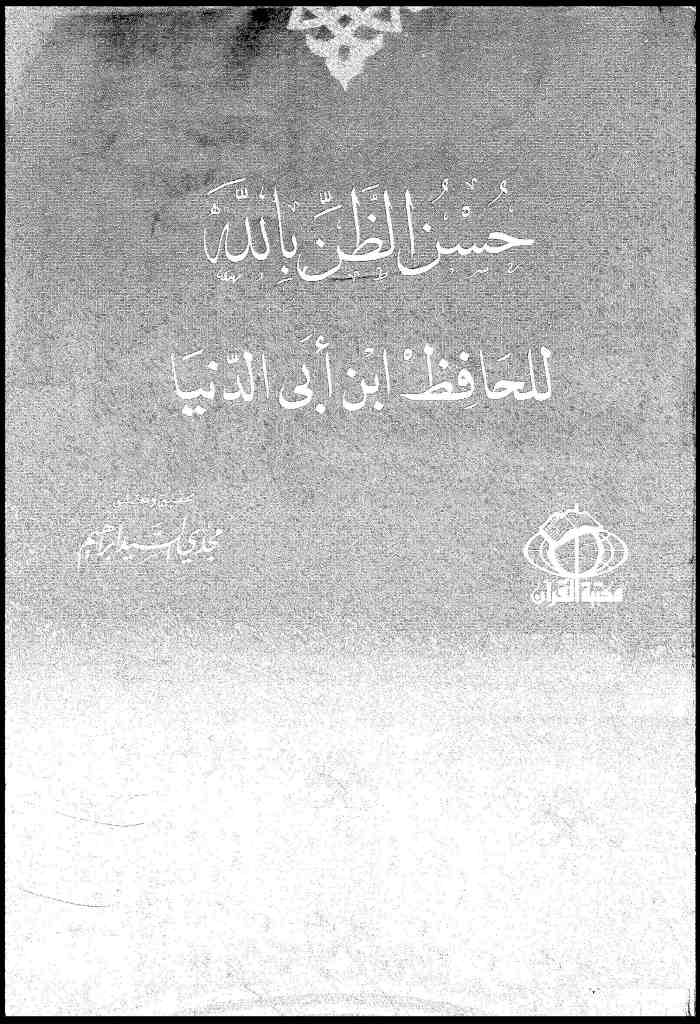 حُسْنُ الظَّنِّ بِاللَّهِ
للحَافِظْ ابْن أَبَى الدّنيَا
تحقيق وتعليق
مجدي السيد إبراهيم
مكتبة القرآن